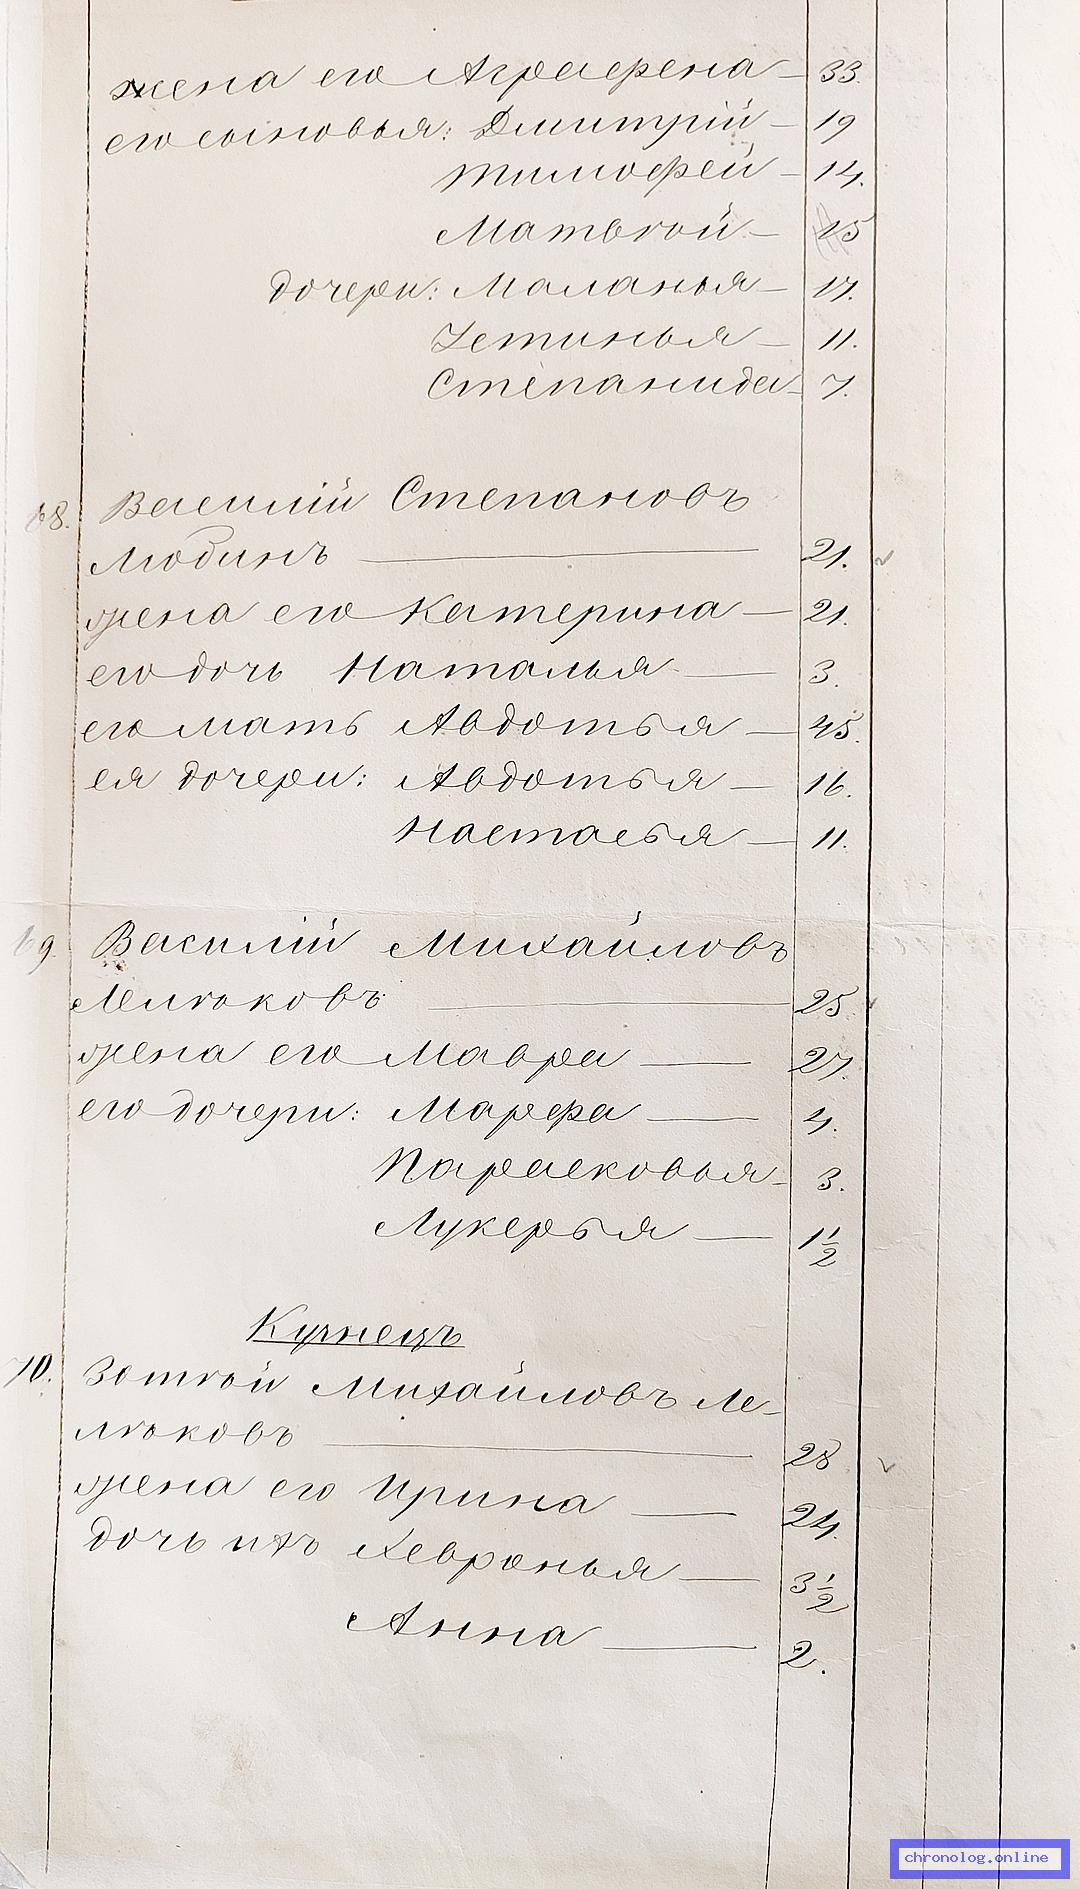 жена его Аграфена — 33.
его сыновья: Дмитрій — 19
Тимофей — 14.
Матвѣй — 15
дочери: Маланья — 17.
Устинья — 11.
Степанида — 7.
68. Василій Степановъ
Любинъ — 21.
жена его Катерина — 21.
его дочь Наталья — 3.
его мать Авдотья — 45.
ея дочери: Авдотья — 16.
Настасья — 11.
69. Василій Михайловъ
Лелюковъ — 25
жена его Мавра — 27.
его дочери: Марфа — 4.
Парасковья — 3.
Лукерья — 1 1/2
Кузнецъ
70. Зотѣй Михайловъ Ле-
люковъ — 28
жена его Ирина — 24.
дочь ихъ Хевронья — 3 1/2
Анна — 2.
chronolog.online